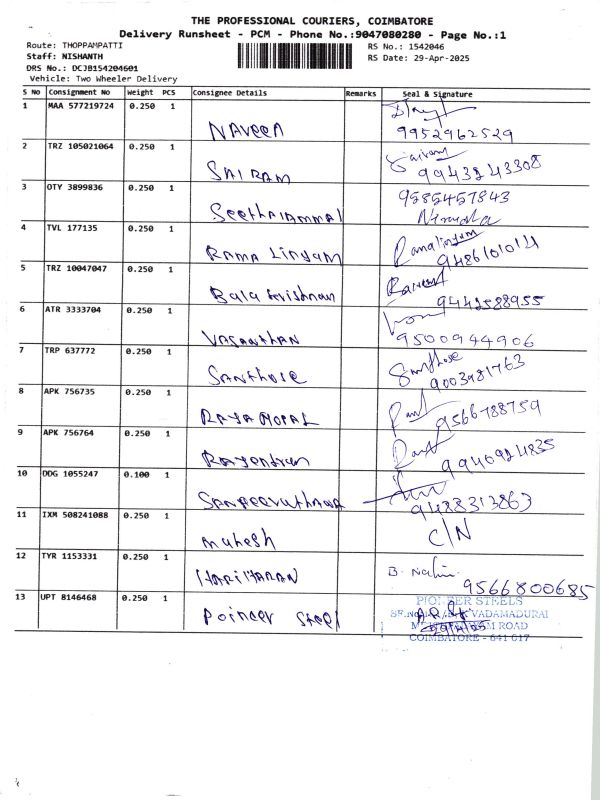 THE PROFESSIONAL COURIERS, COIMBATORE
Delivery Runsheet - PCM - Phone No.:9047080280 - Page No.:1
Route: THOPPAMPATTI RS No.: 1542046
Staff: NISHANTH RS Date: 29-Apr-2025
DRS No.: DCJB154204601
Vehicle: Two Wheeler Delivery
S No Consignment No Weight PCS Consignee Details Remarks Seal & Signature
1 MAA 577219724 0.250 1
NAVEEN 9952962529
2 TRZ 105021064 0.250 1
SAIRAM Sairam 9943243308
3 OTY 3899836 0.250 1 9585457843
Seethalammal Nirmala
4 TVL 177135 0.250 1
RAMA LINGAM Ramalingam 9486101014
5 TRZ 10047047 0.250 1
Bala krishnan 9442588955
6 ATR 3333704 0.250 1
VASANTHAN 9500944906
7 TRP 637772 0.250 1
SANTHOSE Santhose 9003981763
8 APK 756735 0.250 1
RAJA GOPAL 9566788759
9 APK 756764 0.250 1
Rajendran 9940924835
10 DDG 1055247 0.100 1
9488313863
11 IXM 508241088 0.250 1
Mahesh C/N
12 TYR 1153331 0.250 1
HARIHARAN B. 9566800685
13 UPT 8146468 0.250 1
Poineer steel
PIONEER STEELS
VADAMADURAI
ROAD
COIMBATORE - 641 017
29/4/25